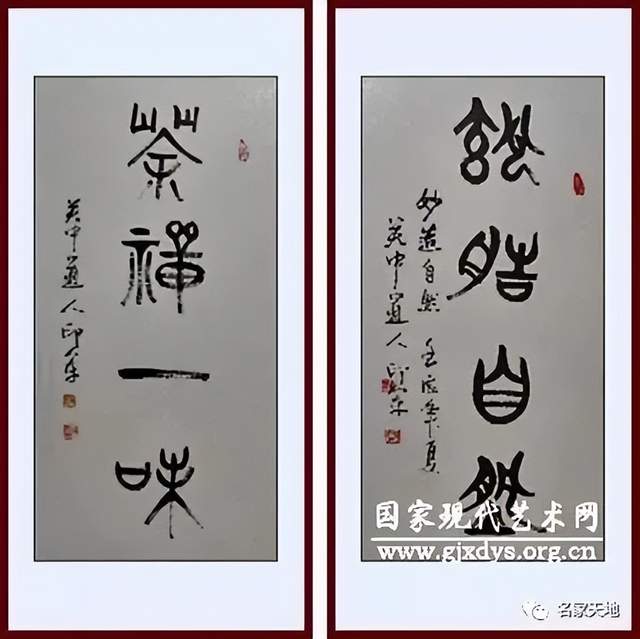 茶禪一味
中道人印
妙造自然
妙造自然 壬辰年夏
中道人印
国家现代艺术网
www.gjxdys.org.cn
名家天地